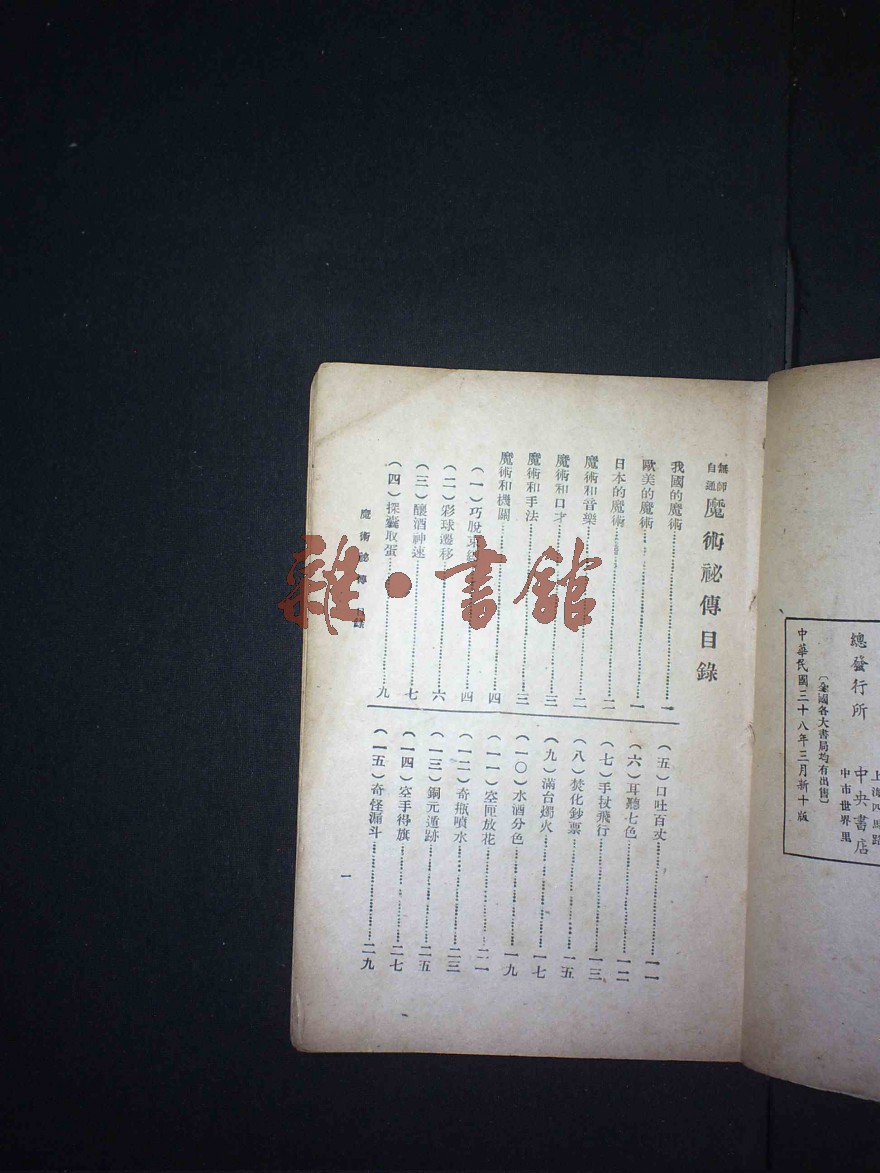 總發行所 中央書店
上海四馬路
中市世界里
〔全國各大書局均有出售〕
中華民國三十八年三月新十版
無師自通 魔術祕傳目錄
我國的魔術 一
歐美的魔術 一
日本的魔術 二
魔術和音樂 二
魔術和口才 三
魔術和手法 三
魔術和機關 四
(一)巧脫 四
(二)彩球遷移 六
(三)釀酒神速 七
(四)探囊取蛋 九
(五)口吐百丈 一一
(六)耳聽七色 一二
(七)手杖飛行 一三
(八)焚化鈔票 一五
(九)滿台燭火 一七
(一〇)水酒分色 一九
(一一)空匣放花 二一
(一二)奇瓶噴水 二三
(一三)銅元遁跡 二五
(一四)空手得旗 二七
(一五)奇怪漏斗 二九
魔術祕傳 目錄
一
雜·書館